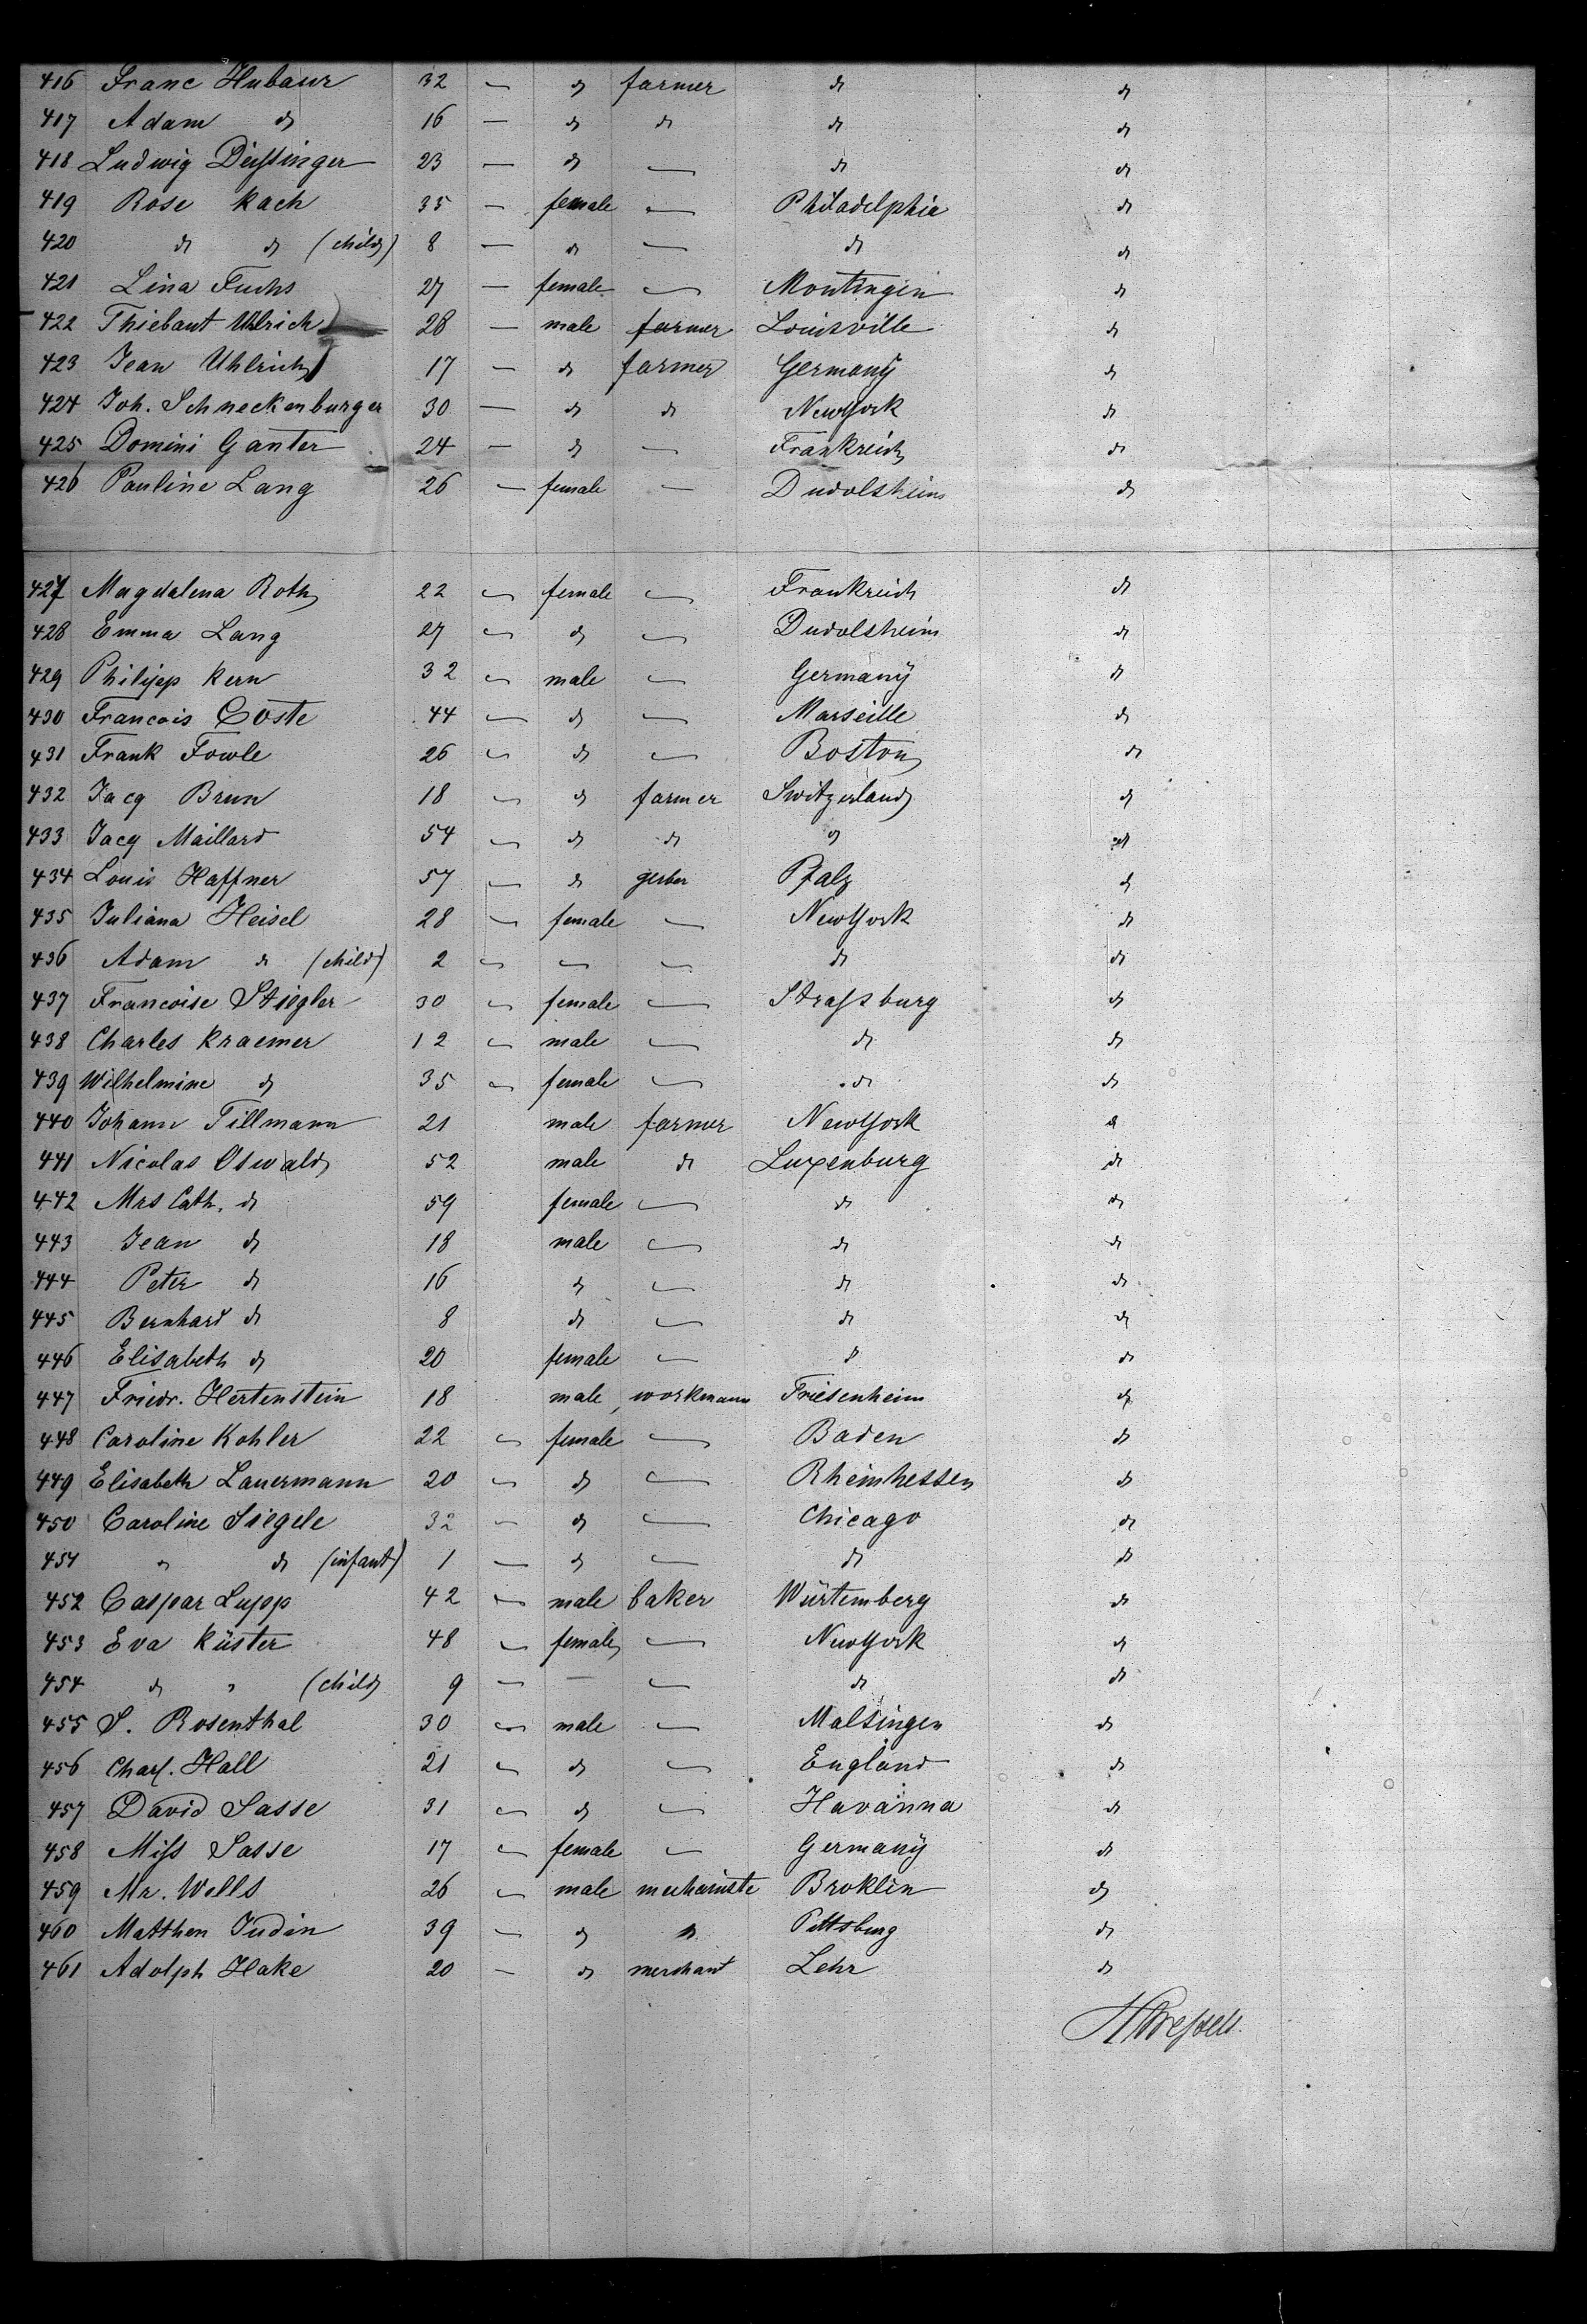 416 Franc Hubaur 32 — do farmer do do
417 Adam do 16 — do do do do
418 Ludwig 23 — do — do do
419 Rose Kach 35 — female — Philadelphia do
420 do do (child) 8 — do — do do
421 Lina Fuchs 27 — female — Montingin do
422 Thiebaut Uhlrich 28 — male farmer Louisville do
423 Jean Uhlrich 17 — do farmer Germany do
424 Joh. Schneckenburger 30 — do do NewYork do
425 Domini Ganter 24 — do — Frankreich do
426 Pauline Lang 26 — female — Dudolsheim do
427 Magdalena Roth 22 — female — Frankreich do
428 Emma Lang 27 — do — Dudolsheim do
429 Philipp Kern 32 — male — Germany do
430 Francois Coste 44 — do — Marseille do
431 Frank Fowle 26 — do — Boston do
432 Jacq Brun 18 — do farmer Switzerland do
433 Jacq Maillard 54 — do do do do
434 Louis Haffner 57 — do gerber Pfalz do
435 Juliana Heisel 28 — female — NewYork do
436 Adam do (child) 2 — — — do do
437 Francoise Stiegler 30 — female — Straßburg do
438 Charles Kraemer 12 — male — do do
439 Wilhelmine do 35 — female — do do
440 Johann Tillmann 21 male farmer NewYork do
441 Nicolas Oswald 52 male do Luxenburg do
442 Mrs Cath. do 59 female — do do
443 Jean do 18 male — do do
444 Peter do 16 do — do do
445 Bernhard do 8 do — do do
446 Elisabeth do 20 female — do do
447 Friedr. Hertenstein 18 male, workmann Friesenheim do
448 Caroline Kohler 22 — female — Baden do
449 Elisabeth Lauermann 20 — do — Rheinhessen do
450 Caroline Siegele 32 — do — Chicago do
451 " do (infant) 1 — do — do do
452 Caspar Lupp 42 — male baker Würtemberg do
453 Eva Küster 48 — female — NewYork do
454 do " (child) 9 — — — do do
455 S. Rosenthal 30 — male — Malsingen do
456 Charl. Hall 21 — do — England do
457 David Sasse 31 — do — Havanna do
458 Miss Sasse 17 — female — Germany do
459 Mr. Wells 26 — male mechaniste Broklin do
460 Matthen Judin 39 — do do Pittsburg do
461 Adolph Hake 20 — do merchant Lehr do